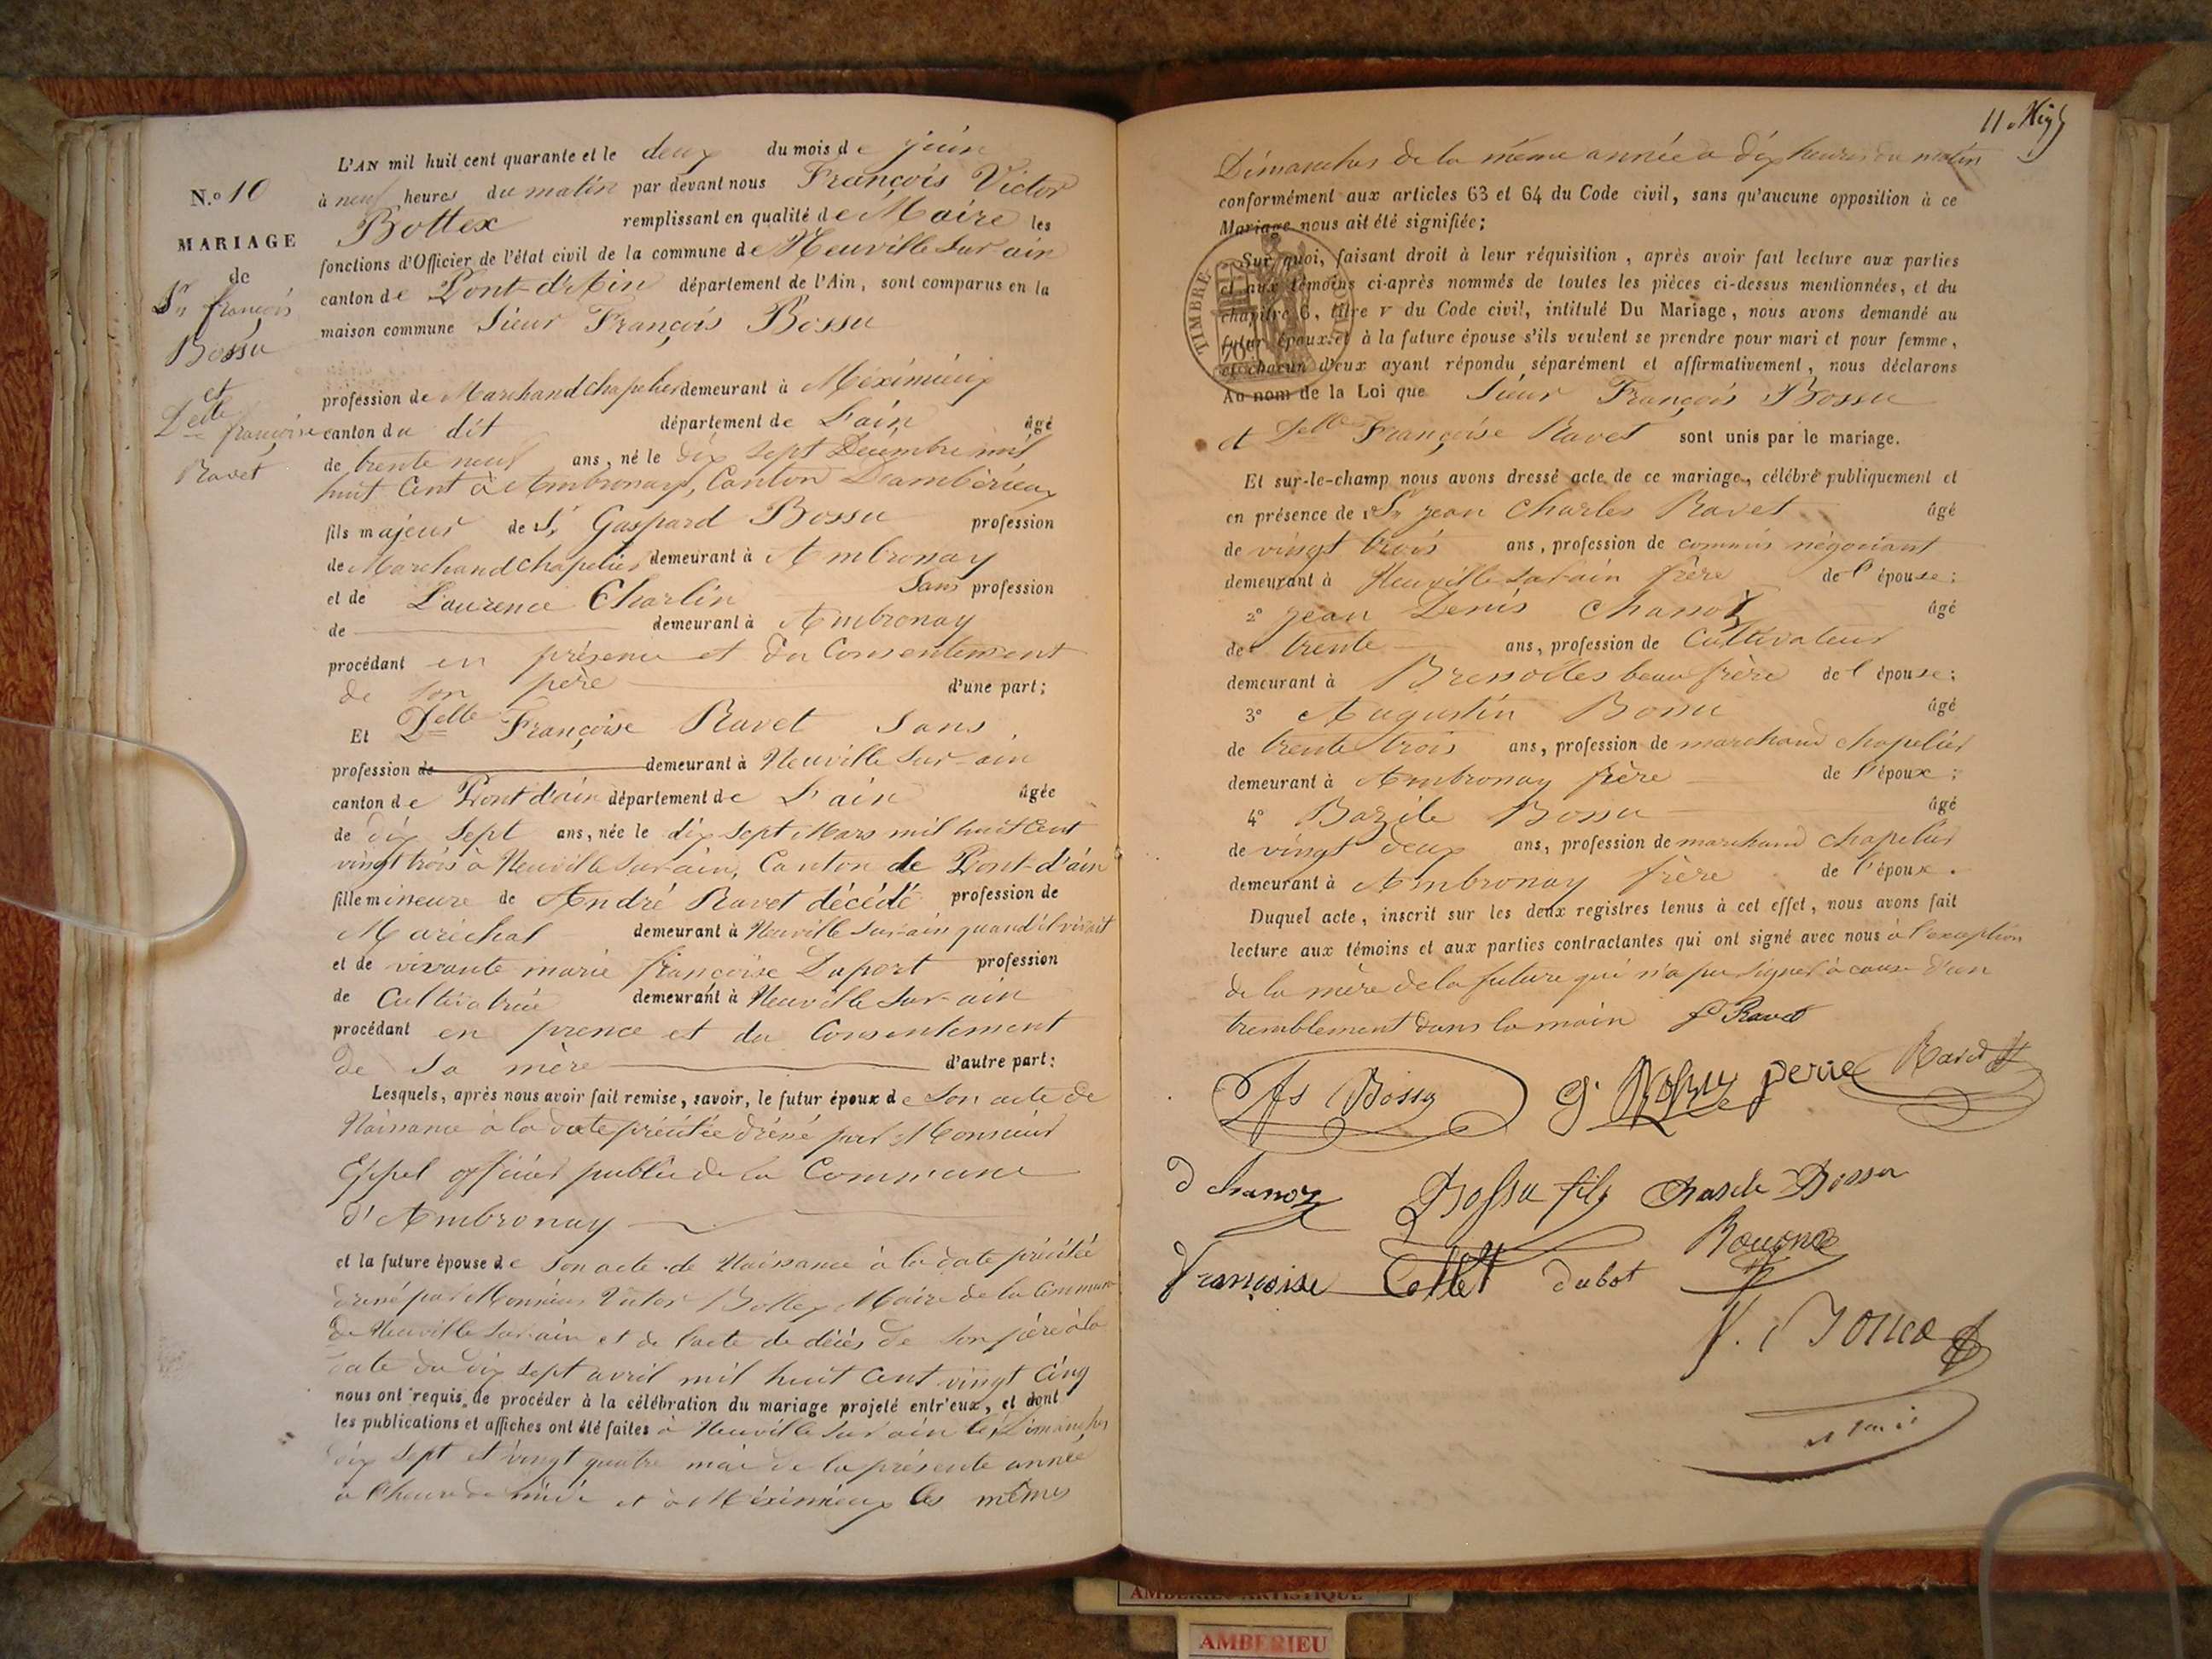 N.º 10
MARIAGE
de
Sr françois
Bossu
et
Delle françoise
Ravet
L'AN mil huit cent quarante et le deux du mois de juin
à neuf heures du matin par devant nous François Victor
Bottex remplissant en qualité de Maire les
fonctions d'Officier de l'état civil de la commune de Neuville sur ain
canton de Pont-d'Ain département de l'Ain, sont comparus en la
maison commune Sieur François Bossu
profession de Marchand chapelier demeurant à Méximieux
canton du dit département de L'ain âgé
de trente neuf ans, né le dix sept Décembre mil
huit Cent à Ambronay, Canton D'ambérieux
fils majeur de Sr Gaspard Bossu profession
de Marchand chapelier demeurant à Ambronay
et de Laurence Charlin Sans profession
de demeurant à Ambronay
procédant en présence et du Consentement
de son père d'une part;
Et Delle Françoise Ravet Sans
profession de demeurant à Neuville Sur-ain
canton de Pont d'ain département de L'ain âgée
de dix Sept ans, née le dix sept Mars mil huit Cent
vingt trois à Neuville Sur-ain, Canton de Pont-d'ain
fille mineure de André Ravet décédé profession de
Maréchal demeurant à Neuville Sur-ain quand il vivait
et de vivante marie françoise Duport profession
de Cultivatrice demeurant à Neuville Sur-ain
procédant en prence et du Consentement
de Sa mère d'autre part:
Lesquels, après nous avoir fait remise, savoir, le futur époux de Son acte de
Naissance à la date précitée dréssé par Monsieur
officier public de la Commune
d'Ambronay
et la future épouse de Son acte de Naissance à la date précitée
dressé par Monsieur Victor Bottex Maire de la Commune
de Neuville Sur-ain et de l'acte de décès de Son père à la
date du dix sept avril mil huit Cent vingt Cinq
nous ont requis de procéder à la célébration du mariage projeté entr'eux, et dont
les publications et affiches ont été faites à Neuville Sur ain les Dimanches
dix Sept et vingt quatre mai de la présente année
à l'heure de midi et à Méximieux les mêmes
Dimanches de la même année à dix heures du matin
conformément aux articles 63 et 64 du Code civil, sans qu'aucune opposition à ce
Mariage nous ait été signifiée;
TIMBRE
Sur quoi, faisant droit à leur réquisition, après avoir fait lecture aux parties
et aux témoins ci-après nommés de toutes les pièces ci-dessus mentionnées, et du
chapitre 6, titre v du Code civil, intitulé Du Mariage, nous avons demandé au
futur époux et à la future épouse s'ils veulent se prendre pour mari et pour femme,
et chacun d'eux ayant répondu séparément et affirmativement, nous déclarons
Au nom de la Loi que Sieur François Bossu
et Delle Françoise Ravet sont unis par le mariage.
Et sur-le-champ nous avons dressé acte de ce mariage, célébré publiquement et
en présence de 1º Sr jean Charles Ravet âgé
de vingt trois ans, profession de commis négociant
demeurant à Neuville Sur-ain frère de l'épouse;
2º jean Denis Chanoz âgé
de trente ans, profession de Cultivateur
demeurant à Bressolles beau frère de l'épouse;
3º Augustin Bossu âgé
de trente trois ans, profession de marchand chapelier
demeurant à Ambronay frère de l'époux;
4º Bazile Bossu âgé
de vingt deux ans, profession de marchand chapelier
demeurant à Ambronay frère de l'époux.
Duquel acte, inscrit sur les deux registres tenus à cet effet, nous avons fait
lecture aux témoins et aux parties contractantes qui ont signé avec nous à l'exception
de la mère de la future qui n'a pu signer à cause d'un
tremblement dans la main fse Ravet
fs Bossu G. Bossu perre Ravet
d chanoz Bossu fils Basile Bossu
Françoise Collet dubot
AMBERIEU ARTISTIQUE
AMBERIEU